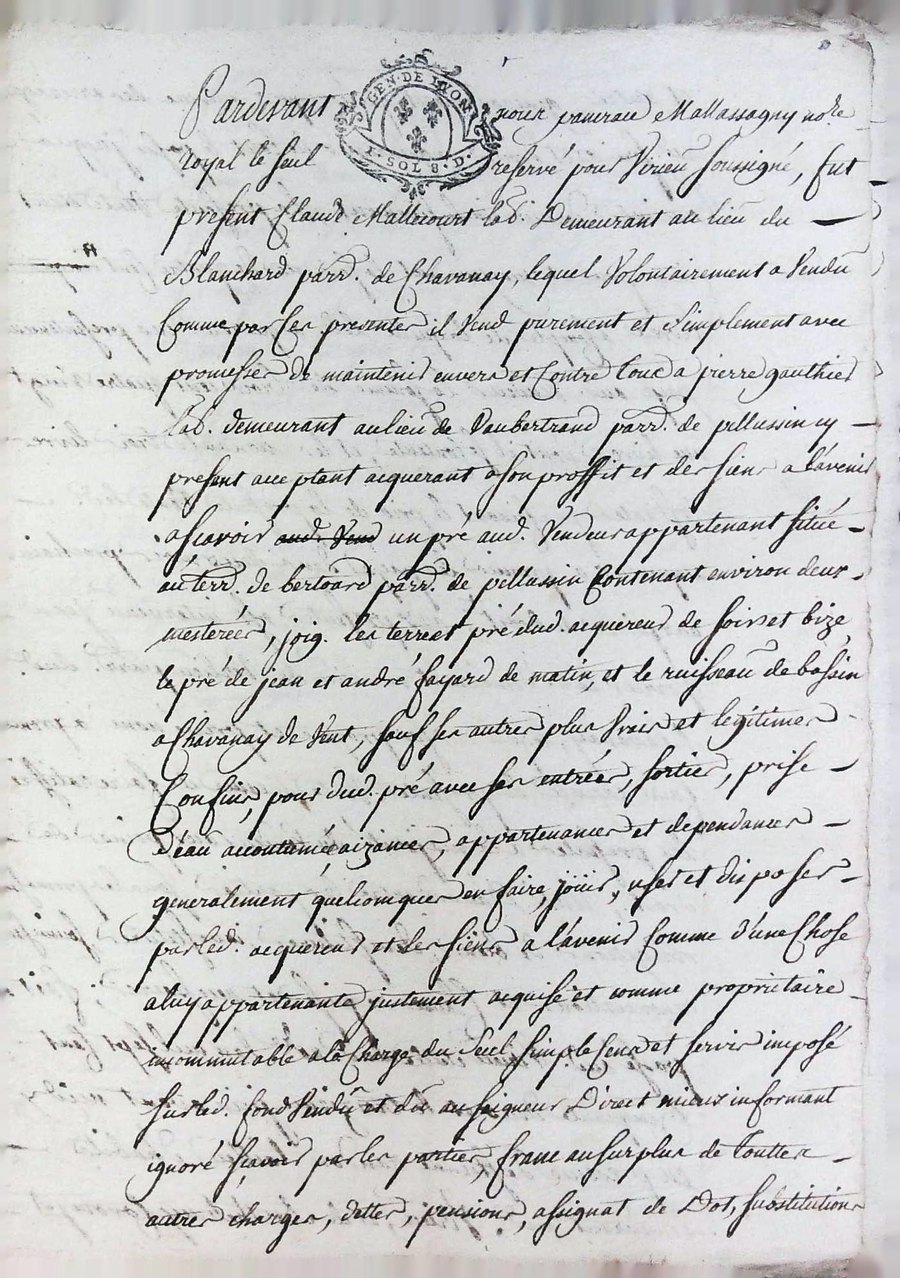 GEN·DE LYON
1·SOL 8·D·
Pardevant nous pancrace Mallassagny no.re
royal le seul reservé pour Virieu soussigné, fut
present Claude Mallecourt lab. Demeurant au lieu du
Blanchard parr. de Chavanay, lequel Volontairement a Vendu
Comme par Ces presentes il Vend purement et simplement avec
promesses de maintenir envers et Contre tous a pierre gauthier
lab. demeurant au lieu de Vaubertrand parr. de pellussin cy
present acceptant acquerant a son proffit et des siens a l'avenir
a sçavoir aud. Vend un pré aud. Vendeur appartenant situé
au terr. de bertoard parr. de pellussin Contenant environ deux
mesterées, joig. les terre et pré dud. acquereur de soir et bize
le pré de jean et andré fayard de matin, et le ruisseau de bassin
a Chavanay de Vent, sauf ses autres plus Vrais et legitimes
Confins, pour dud. pré avec ses entrées, sorties, prise
d'eau accoutumée aizances, appartenances et dependances
generalement quelconques en faire, joüir, user et disposer
par led. acquereur et les siens a l'avenir Comme d'une Chose
a luy appartenante justement acquise et comme proprietaire
incommutable a la Charge du seul simple Cens et servis imposé
sur led. fond Vendu et dû au seigneur Direct mieux informant
ignoré sçavoir par les parties, franc au surplus de touttes
autres charges, dettes, pensions, assignat de Dot, substitutions